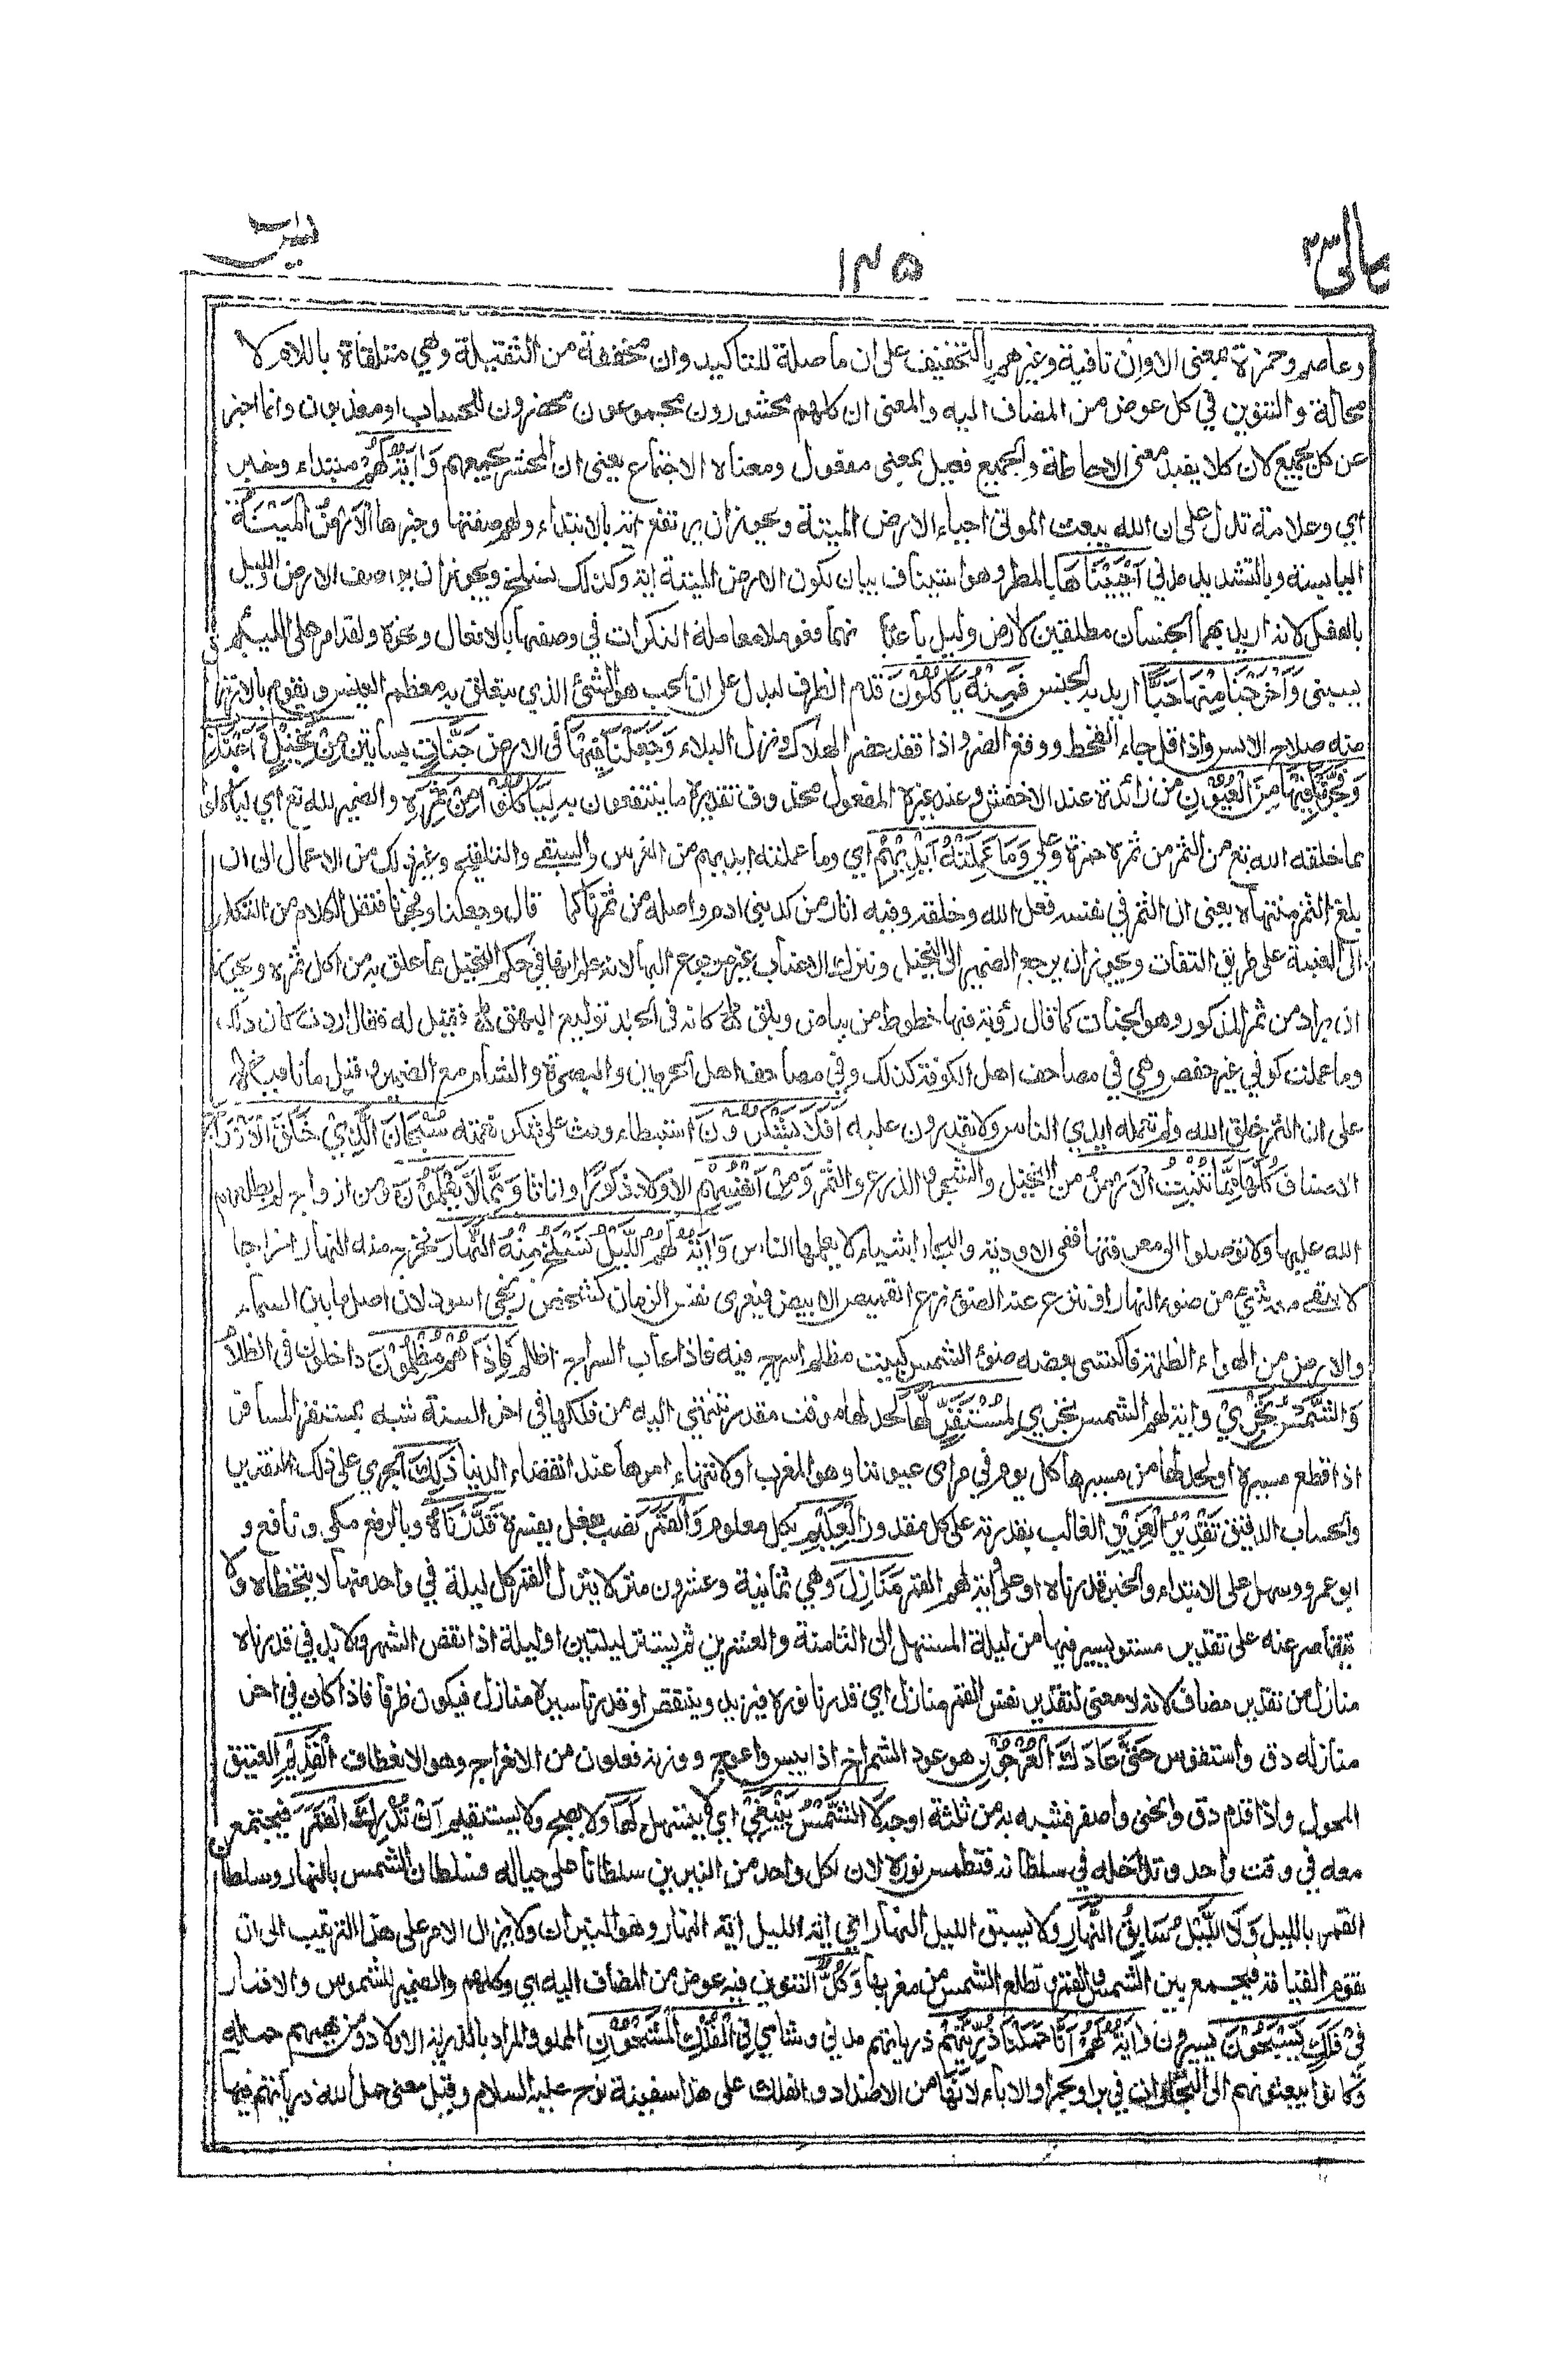 ومالى ٢٣ ١٣٥ يس
وعاصم وحمزة بمعنى الا وان نافية وغيرهم بالتخفيف على ان ما صلة للتاكيد وان مخففة من الثقيلة وهي متلقاة باللام لا
محالة والتنوين في كل عوض من المضاف اليه والمعنى ان كلهم محشورون مجموعون محضرون للحساب او معذبون وانما اخبر
عن كل بجميع لان كلا يفيد معنى الاحاطة والجميع فعيل بمعنى مفعول ومعناه الاجتماع يعنى ان المحشر يجمعهم وَاٰيَةٌ لَّهُمُ مبتداء وخبر
اي وعلامة تدل على ان الله يبعث الموتى احياء الارض الميتة ويجوز ان يرتفع اية بالابتداء ولهم صفتها وخبرها الْاَرْضُ الْمَيْتَةُ
اليابسة وبالتشديد مدني اَحْيَيْنَاهَا بالمطر وهو استيناف بيان لكون الارض الميتة اية وكذلك نسلخ ويجوز ان يوصف الارض والليل
بالفعل لانه اريد بهما الجنسان مطلقين لا ارض وليل باعيانهما فعوملا معاملة النكرات في وصفهما بالافعال ونحوه ولقد امر على اللئيم
يسبني وَاَخْرَجْنَا مِنْهَا حَبًّا اريد به الجنس فَمِنْهُ يَاْكُلُوْنَ قدم الظرف ليدل على ان الحب هو الشئ الذي يتعلق به معظم العيش ويقوم بالارتزاق
منه صلاح الانس واذا قل جاء القحط ووقع الضر واذا فقد حضر الهلاك ونزل البلاء وَجَعَلْنَا فِيْهَا في الارض جَنَّاتٍ بساتين مِنْ نَّخِيْلٍ وَّاَعْنَابٍ
وَفَجَّرْنَا فِيْهَا مِنَ الْعُيُوْنِ من زائدة عند الاخفش وعند غيره المفعول محذوف تقديره ما ينتفعون به لِيَاْكُلُوْا مِنْ ثَمَرِهِ والضمير لله تع اي لياكلوا
مما خلقه الله تع من الثمر من ثمره حمزة وعلي وَمَا عَمِلَتْهُ اَيْدِيْهِمْ اي ومما عملته ايديهم من الغرس والسقي والتلقيح وغير ذلك من الاعمال الى ان
يبلغ الثمر منتهاه يعنى ان الثمر في نفسه فعل الله وخلقه وفيه اثار من كد بني ادم واصله من ثمرنا كما قال وجعلنا وفجرنا فنقل الكلام من التكلم
الى الغيبة على طريق التفات ويجوز ان يرجع الضمير الى النخيل وتترك الاعناب غير مرجوع اليها لانه علم انها في حكم النخيل مما علق به من اكل ثمره ويجوز
ان يراد من ثمر المذكور وهو الجنات كما قال رؤبة فيها خطوط من بياض وبلق كانه في الجلد توليع البهق فقيل له فقال اردت كان ذاك
وما عملت كوفي غير حفص وهي في مصاحف اهل الكوفة كذلك وفي مصاحف اهل الحرمين والبصرة والشام مع الضمير وقيل ما نافية
على ان الثمر خلق الله ولم تعمله ايدي الناس ولا يقدرون عليه اَفَلَا يَشْكُرُوْنَ استبطاء وحث على شكر نعمته سُبْحَانَ الَّذِيْ خَلَقَ الْاَزْوَاجَ
الاصناف كُلَّهَا مِمَّا تُنْبِتُ الْاَرْضُ من النخيل والشجر والزرع والثمر وَمِنْ اَنْفُسِهِمْ الاولاد ذكورا واناثا وَمِمَّا لَا يَعْلَمُوْنَ ومن ازواج لم يطلعهم
الله عليها ولا توصلوا الى معرفتها ففي الاودية والبحار اشياء لا يعلمها الناس وَاٰيَةٌ لَّهُمُ اللَّيْلُ نَسْلَخُ مِنْهُ النَّهَارَ نخرج منه النهار اخراجا
لا يبقى معه شئ من ضوء النهار او ننزع عنه الضوء نزع القميص الابيض فيعرى نفس الزمان كشخص زنجي اسود لان اصل ما بين السماء
والارض من الهواء الظلمة فاكتسى بعضه ضوء الشمس كبيت مظلم اسرج فيه فاذا غاب السراج اظلم فَاِذَا هُمْ مُّظْلِمُوْنَ داخلون في الظلام
وَالشَّمْسُ تَجْرِيْ واية لهم الشمس تجري لِمُسْتَقَرٍّ لَّهَا لحد لها موقت مقدر تنتهي اليه من فلكها في اخر السنة شبه بمستقر المسافر
اذا قطع مسيره او لحد لها من مسيرها كل يوم في مراى عيوننا وهو المغرب او لانتهاء امرها عند انقضاء الدنيا ذٰلِكَ الجري على ذلك التقدير
والحساب الدقيق تَقْدِيْرُ الْعَزِيْزِ الغالب بقدرته على كل مقدور الْعَلِيْمِ بكل معلوم وَالْقَمَرَ نصب بفعل يفسره قَدَّرْنَاهُ وبالرفع مكي ونافع و
ابو عمرو وسهل على الابتداء والخبر قدرناه او على اية لهم القمر مَنَازِلَ وهي ثمانية وعشرون منزلا ينزل القمر كل ليلة في واحد منها لا يتخطاه ولا
يتقاصر عنه على تقدير مستو يسير فيها من ليلة المستهل الى الثامنة والعشرين ثم يستتر ليلتين او ليلة اذا نقص الشهر ولا بد في قدرناه
منازل من تقدير مضاف لانه لا معنى لتقدير نفس القمر منازل اي قدرنا نوره فيزيد وينقص او قدرنا مسيره منازل فيكون ظرفا فاذا كان في اخر
منازله دق واستقوس حَتّٰى عَادَ كَالْعُرْجُوْنِ هو عود الشمراخ اذا يبس واعوج ووزنه فعلون من الانعراج وهو الانعطاف الْقَدِيْمِ العتيق
المحول واذا قدم دق وانحنى واصفر فشبه به من ثلثة اوجه لَا الشَّمْسُ يَنْبَغِيْ اي لا يتسهل لَهَا ولا يصح ولا يستقيم اَنْ تُدْرِكَ الْقَمَرَ فيجتمع
معه في وقت واحد وتداخله في سلطانه فتطمس نوره لان لكل واحد من النيرين سلطانا على حياله فسلطان الشمس بالنهار وسلطان
القمر بالليل وَلَا اللَّيْلُ سَابِقُ النَّهَارِ ولا يسبق الليل النهار اي اية الليل اية النهار وهما النيران ولا يزال الامر على هذا الترتيب الى ان
تقوم القيامة فيجمع بين الشمس والقمر وتطلع الشمس من مغربها وَكُلٌّ التنوين فيه عوض من المضاف اليه اي وكلهم والضمير للشموس والاقمار
فِيْ فَلَكٍ يَّسْبَحُوْنَ يسيرون وَاٰيَةٌ لَّهُمْ اَنَّا حَمَلْنَا ذُرِّيَّتَهُمْ ذرياتهم مدني وشامي فِي الْفُلْكِ الْمَشْحُوْنِ المملو والمراد بالذرية الاولاد ومن يهمهم حمله
وكانوا يبعثونهم الى التجارات في بر او بحر او الاباء لانها من الاضداد والفلك على هذا سفينة نوح عليه السلام وقيل معنى حمل الله ذرياتهم فيها